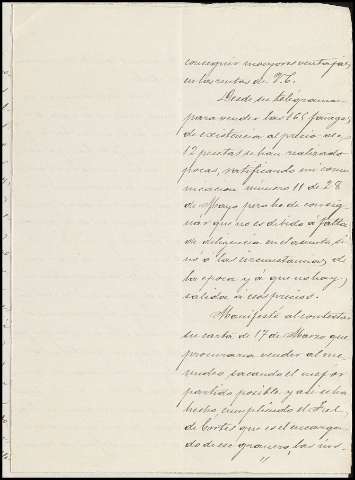 conseguir mayores ventajas
en las rentas de V.E.
Desde su telégrama
para vender las 165 fanegas
de existencia al precio de
12 pesetas se han realizado
pocas, ratificando mi comu
nicacion número 11 de 28
de Mayo pero he de consig
nar que no es debido á falta
de diligencia en el asunto, si
nó á las circunstancias de
la época y á que no hay
salida á esos precios.
Manifesté al contestar
su carta de 17 de Marzo que
procuraria vender al me
nudeo, sacando el mejor
partido posible y asi se ha
hecho, cumpliendo el Fiel
de Cortes que es el encarga
do de ese granero, las ins-
"